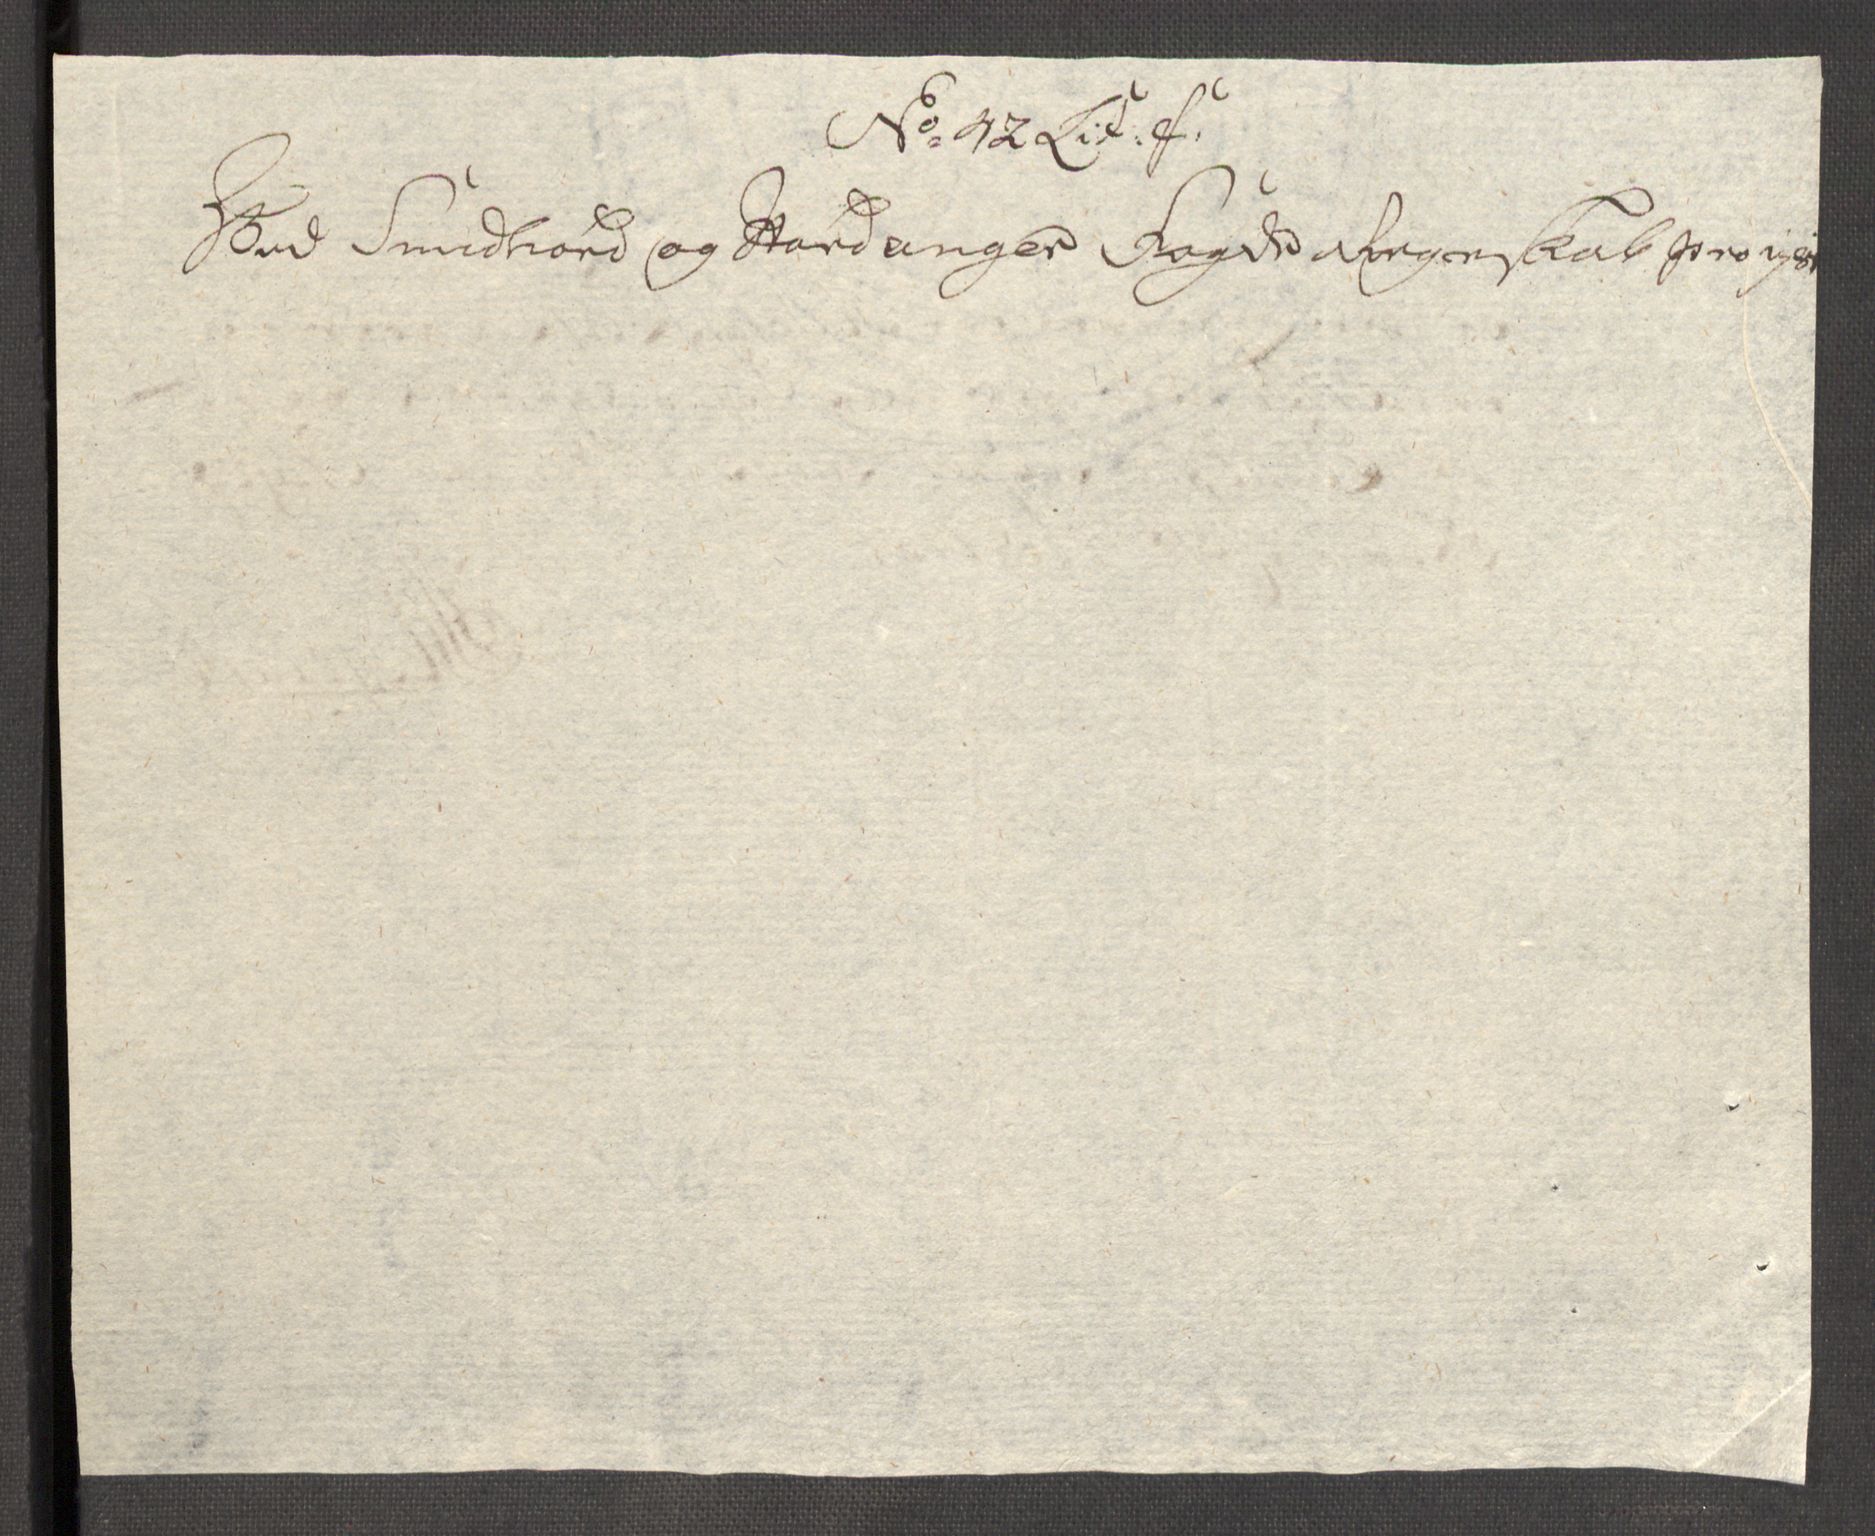 No. 42 Lit: f.
Ved Sundhord og Hardanger Fogds Regenskab pro